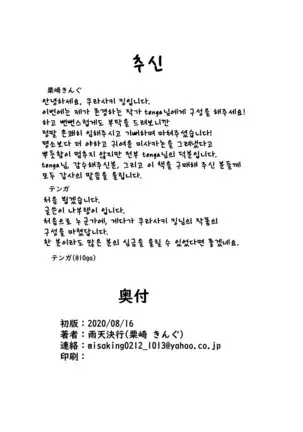 추신
栗崎きんぐ
안녕하세요, 쿠라사키 킹입니다.
이번에는 제가 존경하는 작가 tenga님에게 구성을 해주세요!
하고 뻔뻔스럽게도 부탁을 드려보니깐
정말 흔쾌히 임해주시고 기뻐하며 마쳐주셨습니다!
평소보다 더 야하고 귀여운 미사카는을 그려냈다고
뿌듯함이 멈추지 않지만 전부 tenga님의 덕분입니다.
tenga님, 감수해주신분, 그리고 이 책을 구매해 주신 분들께
모두 감사의 말씀을 올립니다.
텐가
처음 뵙겠습니다.
글쓴이 나부랭이 입니다.
처음으로 누군가에, 게다가 쿠라사키 킹님의 작품의
구성을 마쳤답니다.
한 분이라도 많은 분의 심금을 울릴 수 있었다면 좋겠네요.
텐가(@10ga)
奥付
初版：2020/08/16
著者：雨天決行(栗崎 きんぐ)
連絡：misaking0212_1013@yahoo.co.jp
印刷：